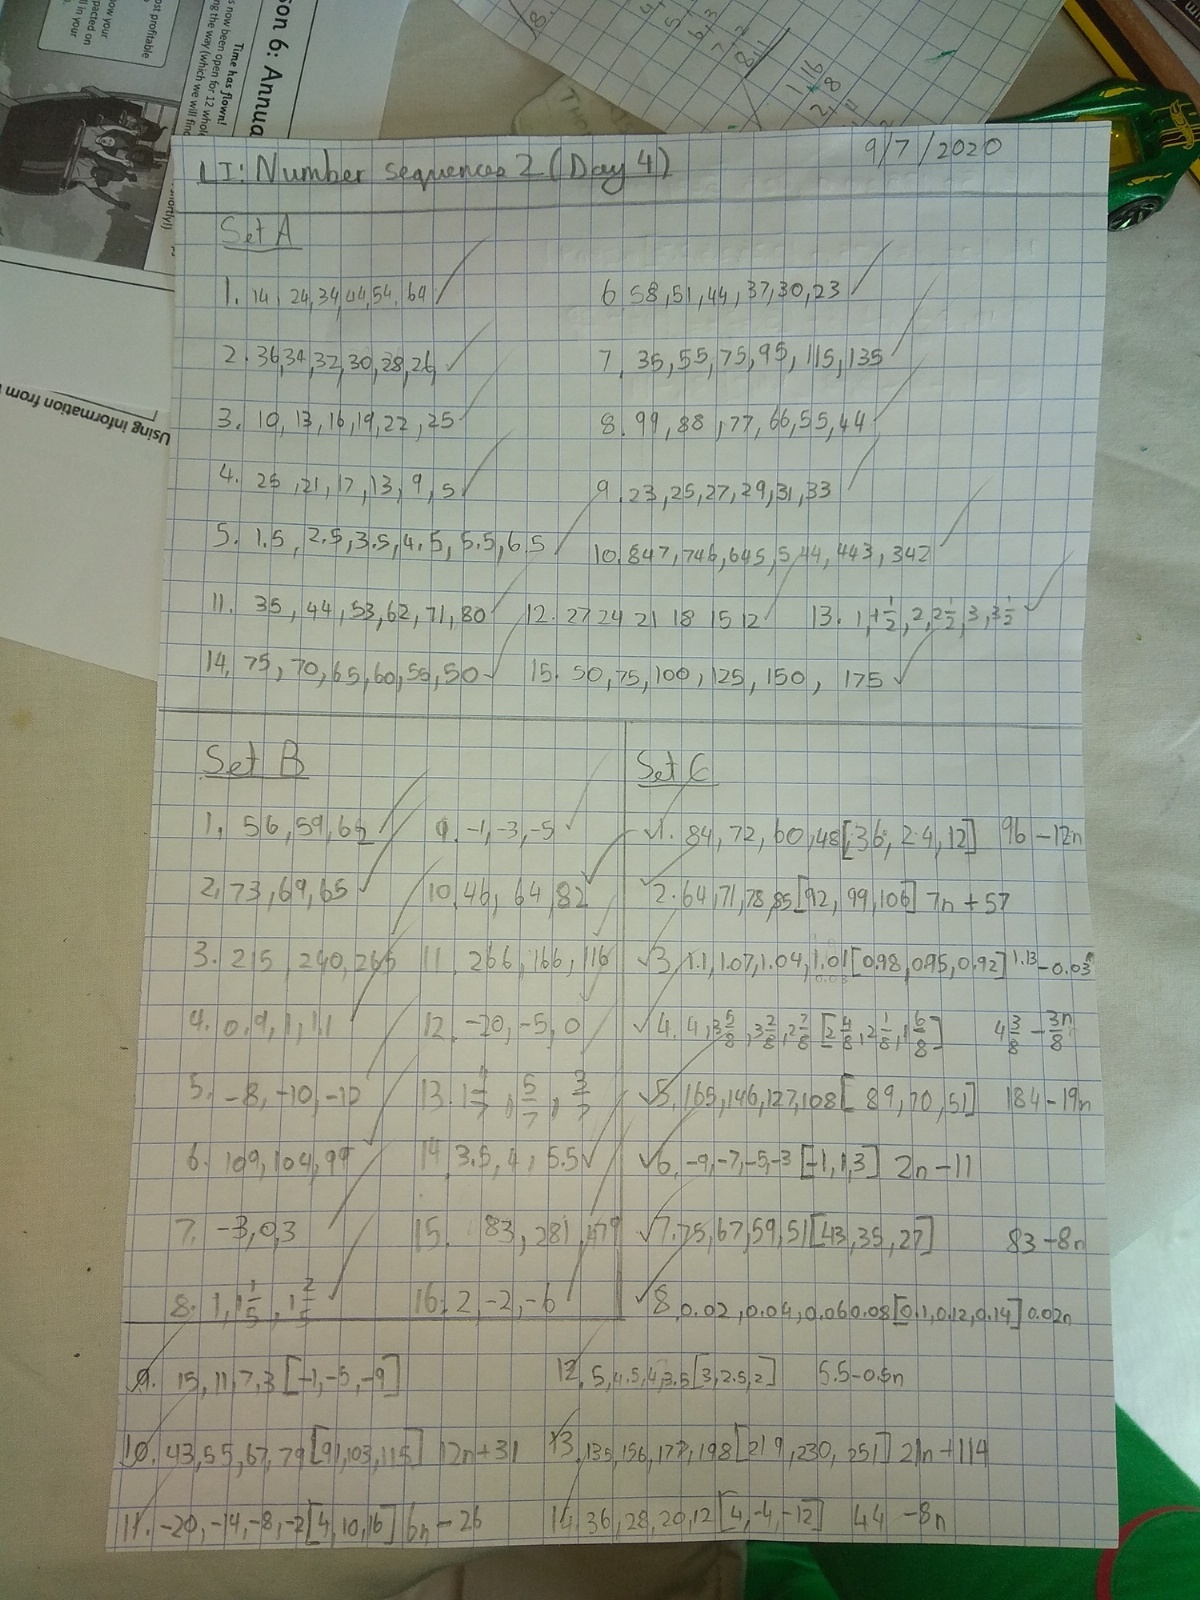 son 6: Annua
Time has flown!
s now been open for 12 whole
ng the way (which we will fin
ost profitable
how your
pacted on
ll in your
Using information from
LI: Number sequences 2 (Day 4)
9/7/2020
Set A
1. 14, 24, 34, 44, 54, 64
6 58, 51, 44, 37, 30, 23
2. 36, 34, 32, 30, 28, 26
7. 35, 55, 75, 95, 115, 135
3. 10, 13, 16, 19, 22, 25
8. 99, 88, 77, 66, 55, 44
4. 25, 21, 17, 13, 9, 5
9. 23, 25, 27, 29, 31, 33
5. 1.5, 2.5, 3.5, 4.5, 5.5, 6.5
10. 847, 746, 645, 544, 443, 342
11. 35, 44, 53, 62, 71, 80 12. 27 24 21 18 15 12 13. 1, 1 1/2, 2, 2 1/2, 3, 3 1/2
14. 75, 70, 65, 60, 55, 50 15. 50, 75, 100, 125, 150, 175
Set B
1. 56, 59, 62
2. 73, 69, 65
3. 215 240, 265
4. 0.9, 1, 1.1
5. -8, -10, -12
6. 109, 104, 99
7. -3, 0, 3
8. 1, 1 1/5, 1 2/5
9. -1, -3, -5
10. 46, 64, 82
11. 266, 166, 116
12. -20, -5, 0
13. 1 4/7, 5/7, 3/7
14. 3.5, 4, 5.5
15. 83, 281, 479
16. 2, -2, -6
Set C
1. 84, 72, 60, 48 [36, 24, 12] 96 - 12n
2. 64, 71, 78, 85 [92, 99, 106] 7n + 57
3. 1.1, 1.07, 1.04, 1.01 [0.98, 0.95, 0.92] 1.13 - 0.03n
4. 4, 3 5/8, 3 2/8, 2 7/8 [2 4/8, 2 1/8, 1 6/8] 4 3/8 - 3n/8
5. 165, 146, 127, 108 [89, 70, 51] 184 - 19n
6. -9, -7, -5, -3 [-1, 1, 3] 2n - 11
7. 75, 67, 59, 51 [43, 35, 27] 83 - 8n
8. 0.02, 0.04, 0.06 0.08 [0.1, 0.12, 0.14] 0.02n
9. 15, 11, 7, 3 [-1, -5, -9]
12. 5, 4.5, 4, 3.5 [3, 2.5, 2] 5.5 - 0.5n
10. 43, 55, 67, 79 [91, 103, 115] 12n + 31
13. 135, 156, 177, 198 [219, 230, 251] 21n + 114
11. -20, -14, -8, -2 [4, 10, 16] 6n - 26
14. 36, 28, 20, 12 [4, -4, -12] 44 - 8n